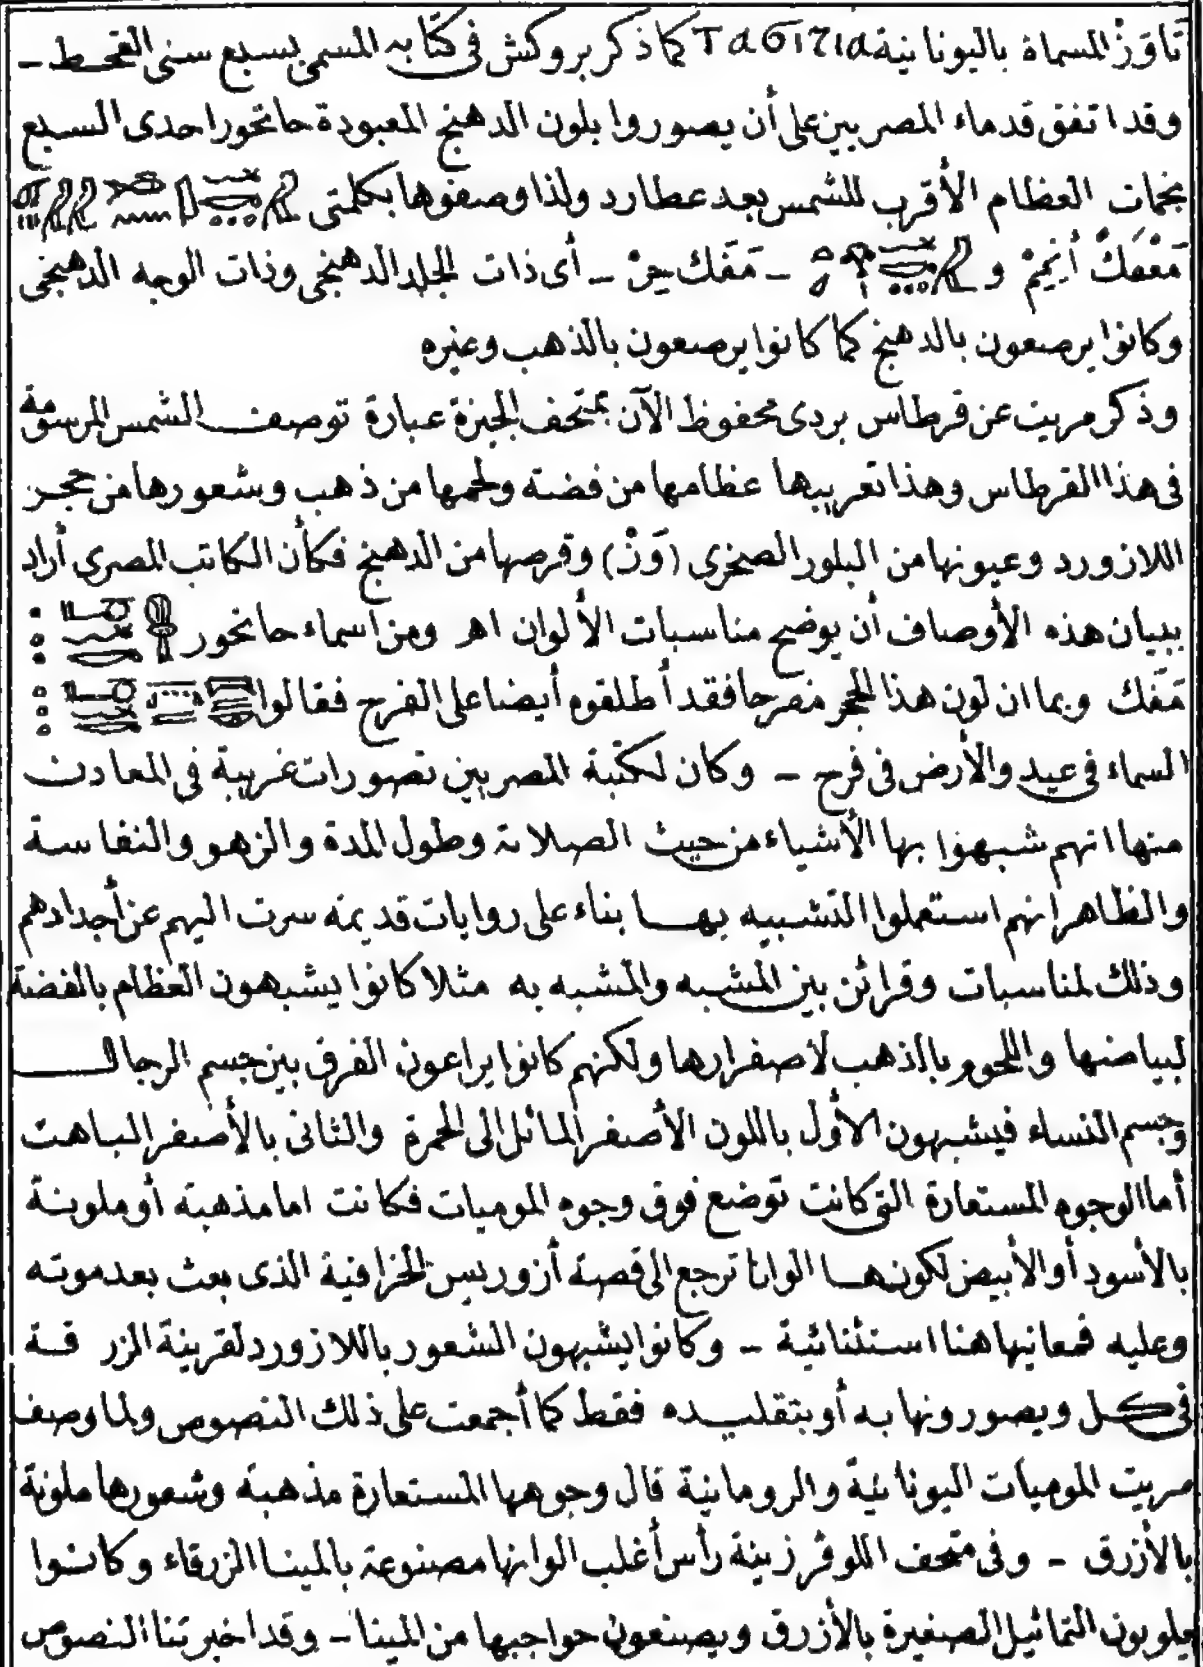 تَاوَزْ المسماة باليونانية TaGiTia كما ذكر بروكش فى كتابه المسمى بسبع سنى القحط ـ
وقد اتفق قدماء المصريين على أن يصوروا بلون الدهنج المعبودة حاتحور احدى السبع
نجمات العظام الأقرب للشمس بعد عطارد ولذا وصفوها بكلمتى
مَفْكَ أَنِيمْ و ـ مَفَك حِرْ ـ أى ذات الجلد الدهنجى وذات الوجه الدهنجى
وكانوا يرصعون بالدهنج كما كانوا يرصعون بالذهب وغيره
وذكر مريت عن قرطاس بردى محفوظ الآن بمتحف الجيزة عبارة توصف الشمس المرسومة
فى هذا القرطاس وهذا تعريبها عظامها من فضة ولحمها من ذهب وشعورها من حجر
اللازورد وعيونها من البلور الصخرى (وَزْ) وقرصها من الدهنج فكأن الكاتب المصرى أراد
ببيان هذه الأوصاف أن يوضح مناسبات الألوان اهـ ومن اسماء حاتحور
مَفَك وبما ان لون هذا الحجر مفرحا فقد أطلقوه أيضا على الفرح فقالوا
السماء فى عيد والأرض فى فرح ـ وكان لكتبة المصريين تصورات غريبة فى المعادن
منها انهم شبهوا بها الأشياء من حيث الصلابة وطول المدة والزهو والنفاسة
والظاهر انهم استعملوا التشبيه بها بناء على روايات قديمة سرت اليهم عن أجدادهم
وذلك لمناسبات وقرائن بين المشبه والمشبه به مثلا كانوا يشبهون العظام بالفضة
لبياضها واللحوم بالذهب لاصفرارها ولكنهم كانوا يراعون الفرق بين جسم الرجال
وجسم النساء فيشبهون الأول باللون الأصفر المائل الى الحمرة والثانى بالأصفر الباهت
أما الوجوه المستعارة التى كانت توضع فوق وجوه الموميات فكانت اما مذهبة أو ملونة
بالأسود أو الأبيض لكونها الوانا ترجع الى قصة أزوريس الخرافية الذى بعث بعد موته
وعليه فمعانيها هنا استثنائية ـ وكانوا يشبهون الشعور باللازورد لقرينة الزرقة
فى كل ويصورونها به أو بتقليده فقط كما أجمعت على ذلك النصوص ولما وصف
مريت الموميات اليونانية والرومانية قال وجوهها المستعارة مذهبة وشعورها ملونة
بالأزرق ـ وفى متحف اللوفر زينة رأس أغلب الوانها مصنوعة بالمينا الزرقاء وكانوا
يلونون التماثيل الصغيرة بالأزرق ويصنعون حواجبها من المينا ـ وقد اخبرتنا النصوص